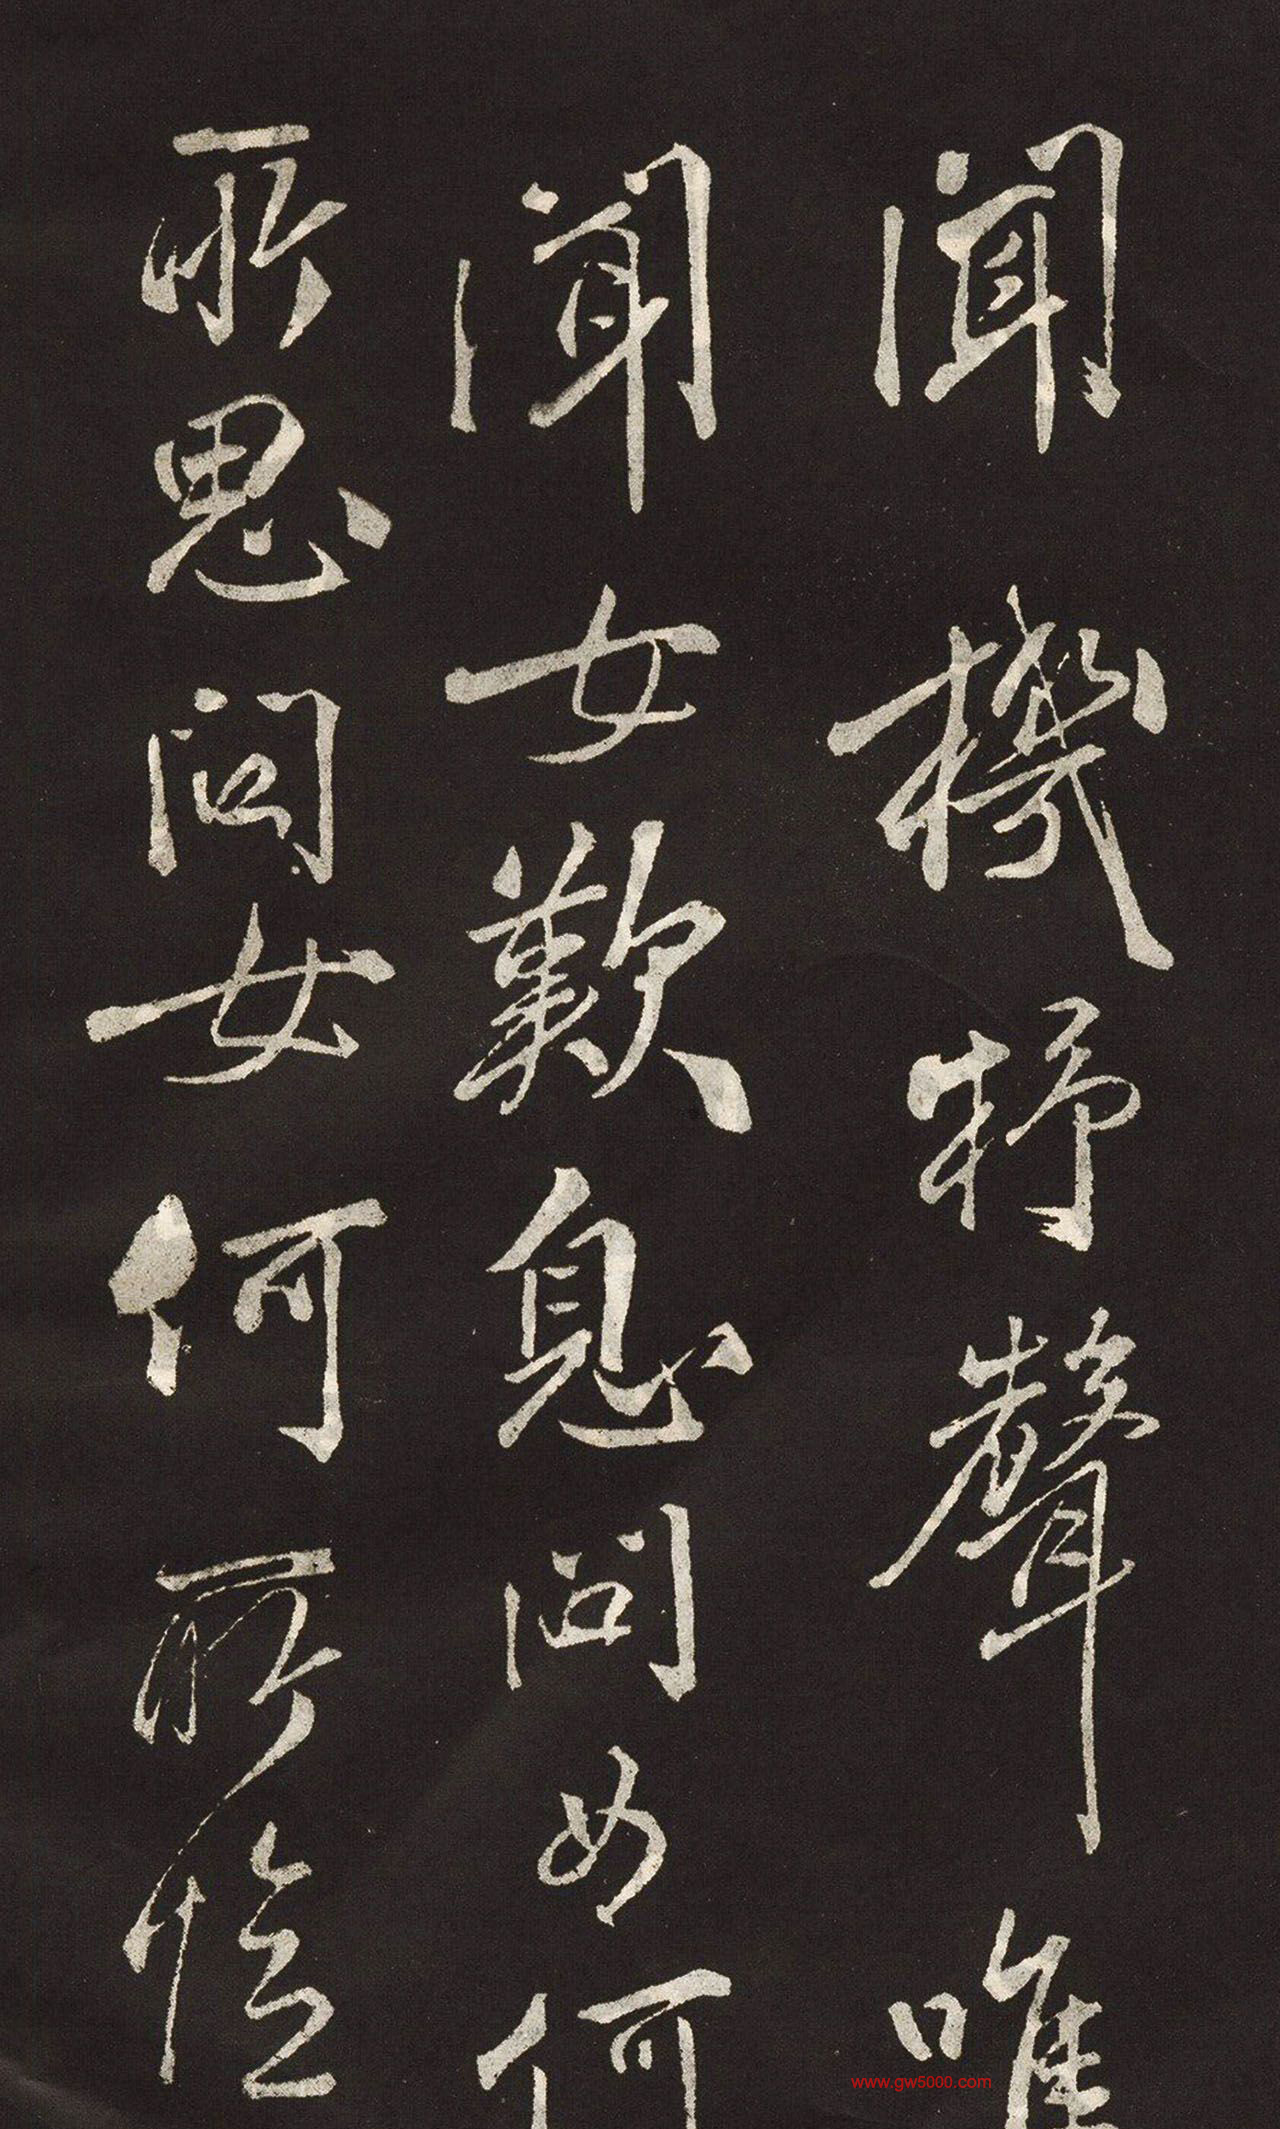 聞機杼聲唯
聞女歎息問女何
所思問女何所憶
www.gw5000.com